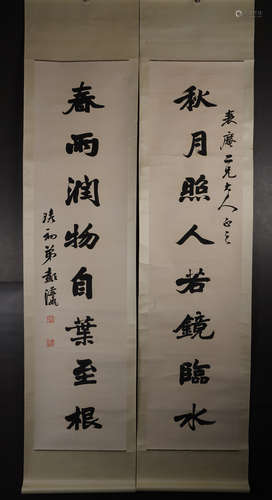 袁廉二兄大人正之
秋月照人若鏡臨水
春雨潤物自葉至根
弟彭